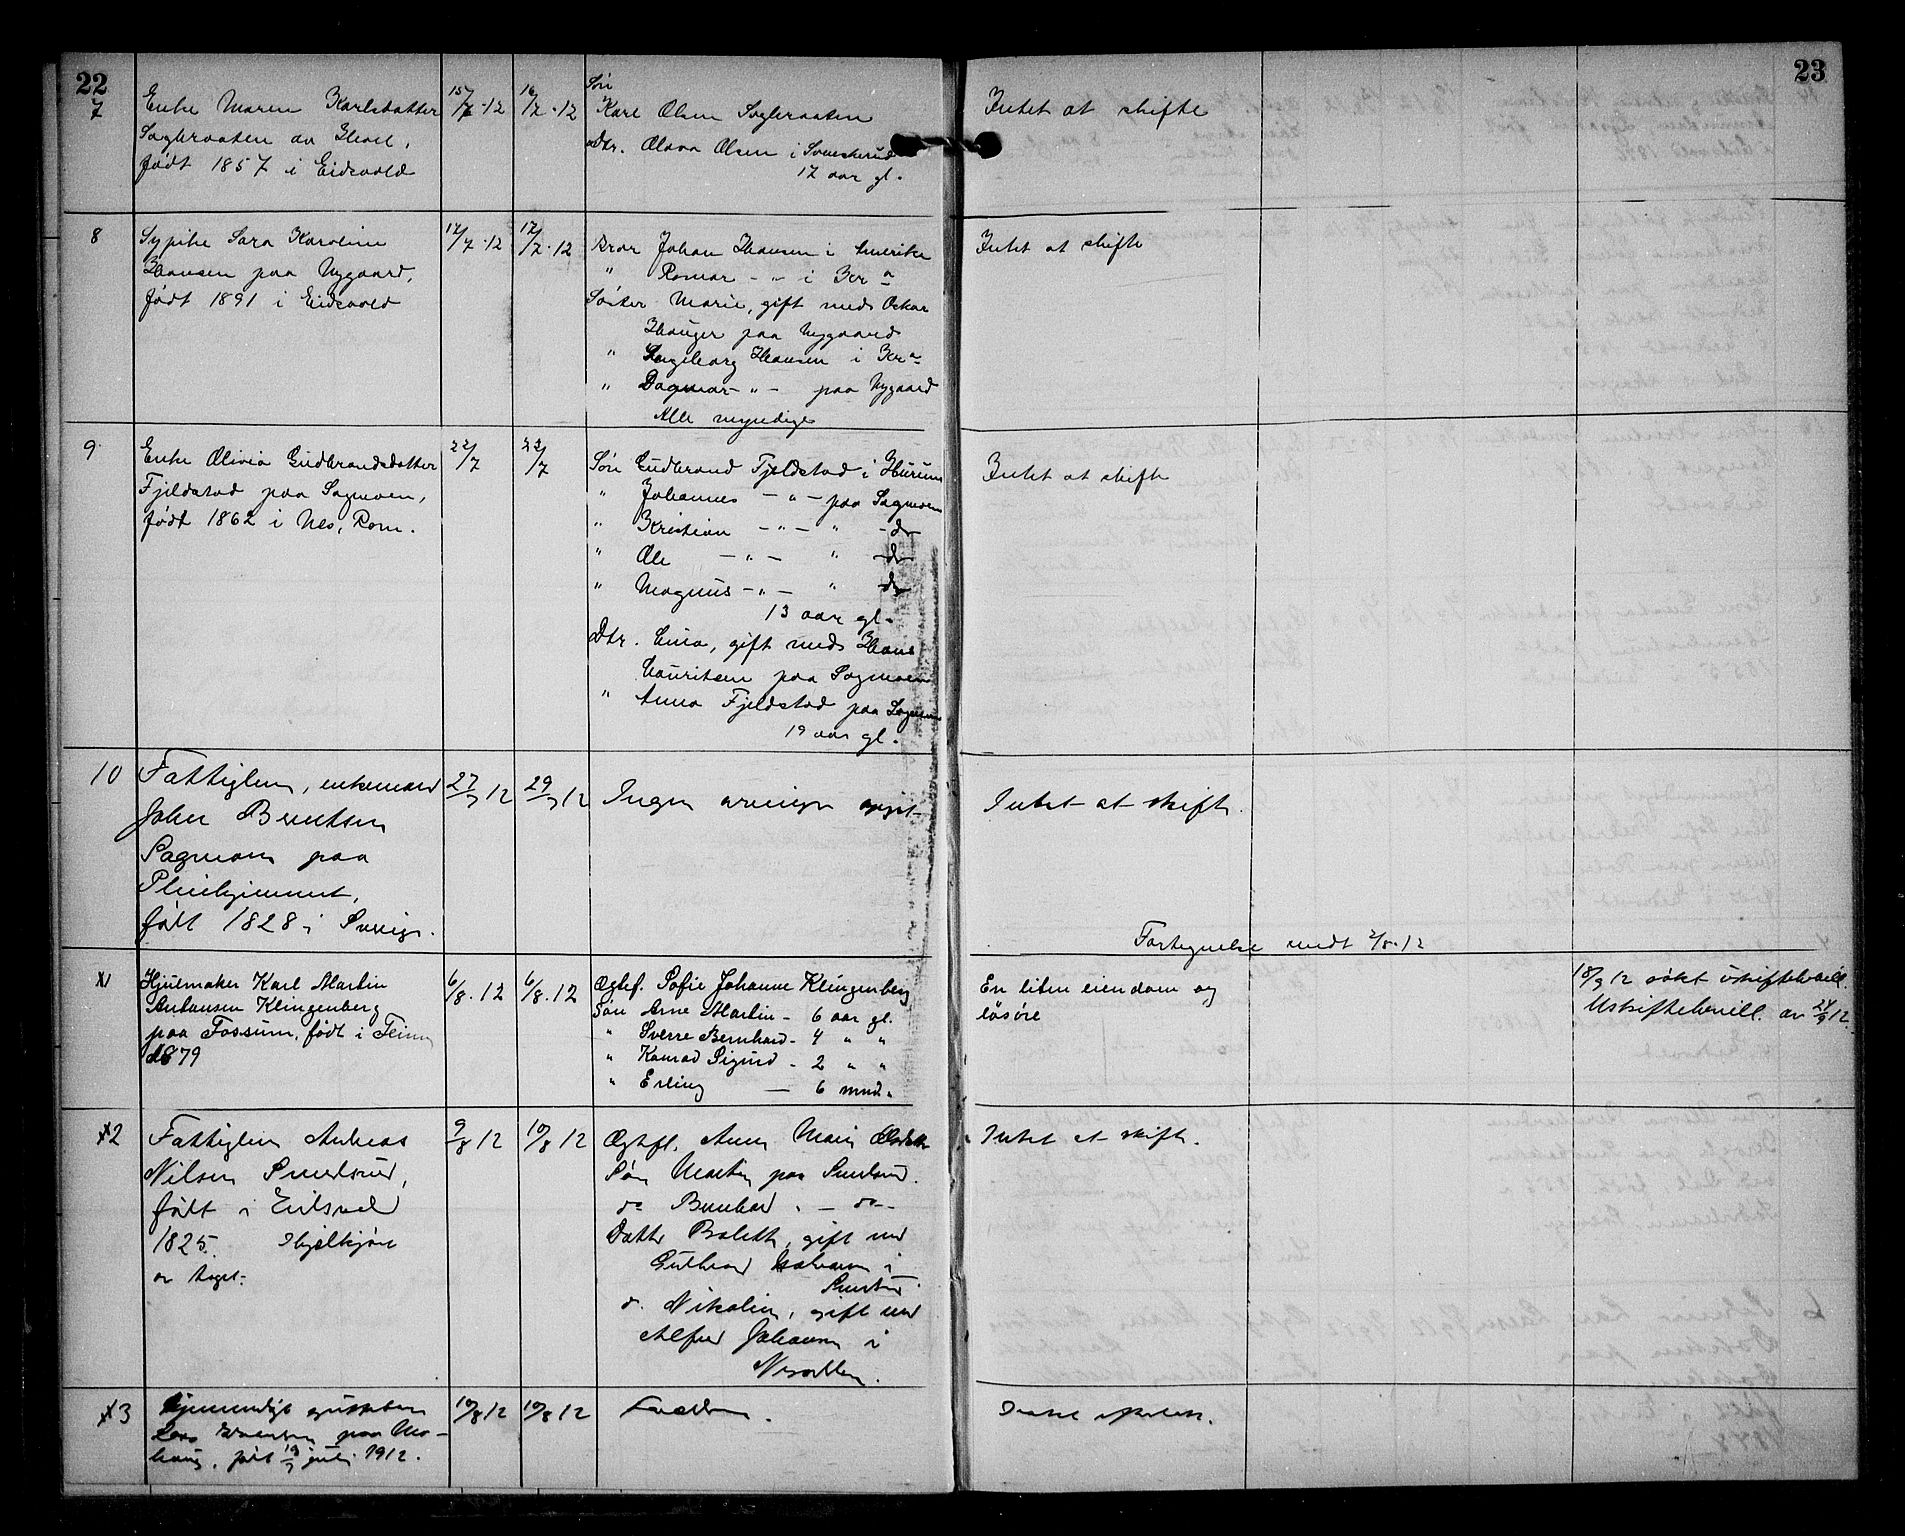 22
7
Enke Maren Karlsdatter
Sagbraaten av Hoel,
født 1857 i Eidsvold
15/7-12
16/7-12
Søn
Karl Olsen Sagbraaten
Dtr. Olava Olsen i
17 aar gl.
Intet at skifte
23
8
Sypike Sara Karoline
Hansen paa Nygaard,
født 1891 i Eidsvold
17/7-12
17/7-12
Bror Johan Hansen i Amerika
" Ragnar - " - i Kra
Søster Marie, gift med Oskar
Hauger paa Nygaard
" Ingeborg Hansen i Kra
" Dagmar - " - paa Nygaard
Alle myndige
Intet at skifte
9
Enke Olivia Gudbrandsdatter
Fjeldstad paa Sagmoen,
født 1862 i Nes, Rom.
22/7
23/7
Søn Gudbrand Fjeldstad i Hurum
" Johannes - " - paa Sagmoen
" Kristian - " - " - do
" Ole - " - " do
" Magnus - " - " do
13 aar gl.
Dtr. Lina, gift med Hans
Lauritsen paa Sagmoen
" Anna Fjeldstad paa Sagmoen
19 aar gl.
Intet at skifte
10
Fattiglem, enkemand
Johan Berntsen
Sagmoen paa
Pleiehjemmet,
født 1828 i Sverige.
27/7 12
29/7 12
Ingen arvinger opgit
Intet at skifte.
Fortegnelse
11
Hjulmaker Karl Martin
Antonsen Klingenberg
paa Fossum, født i
1879
6/8.12
6/8.12
Ægtef. Sofie Johanne Klingenberg
Søn Arne Martin - 6 aar gl.
" Sverre Bernhard - 4 " "
" Konrad Sigurd - 2 " "
" Erling — 6 mnd.
En liten eiendom og
løsøre
18/9 12 søkt uskiftebevill.
Uskiftebevill. av 24/9 12.
12
Fattiglem Andreas
Nilsen
født i Eidsvold
1825.
9/8 12
10/8 12
Ægtef. Anne Marie
Søn Martin paa
do
Datter gift med
i
do. Nikoline, gift med
Alfred Johansen i
Nesodden.
Intet at skifte.
13
paa
født 19/7 juli 1912.
10/8 12
10/8 12
Forældre.